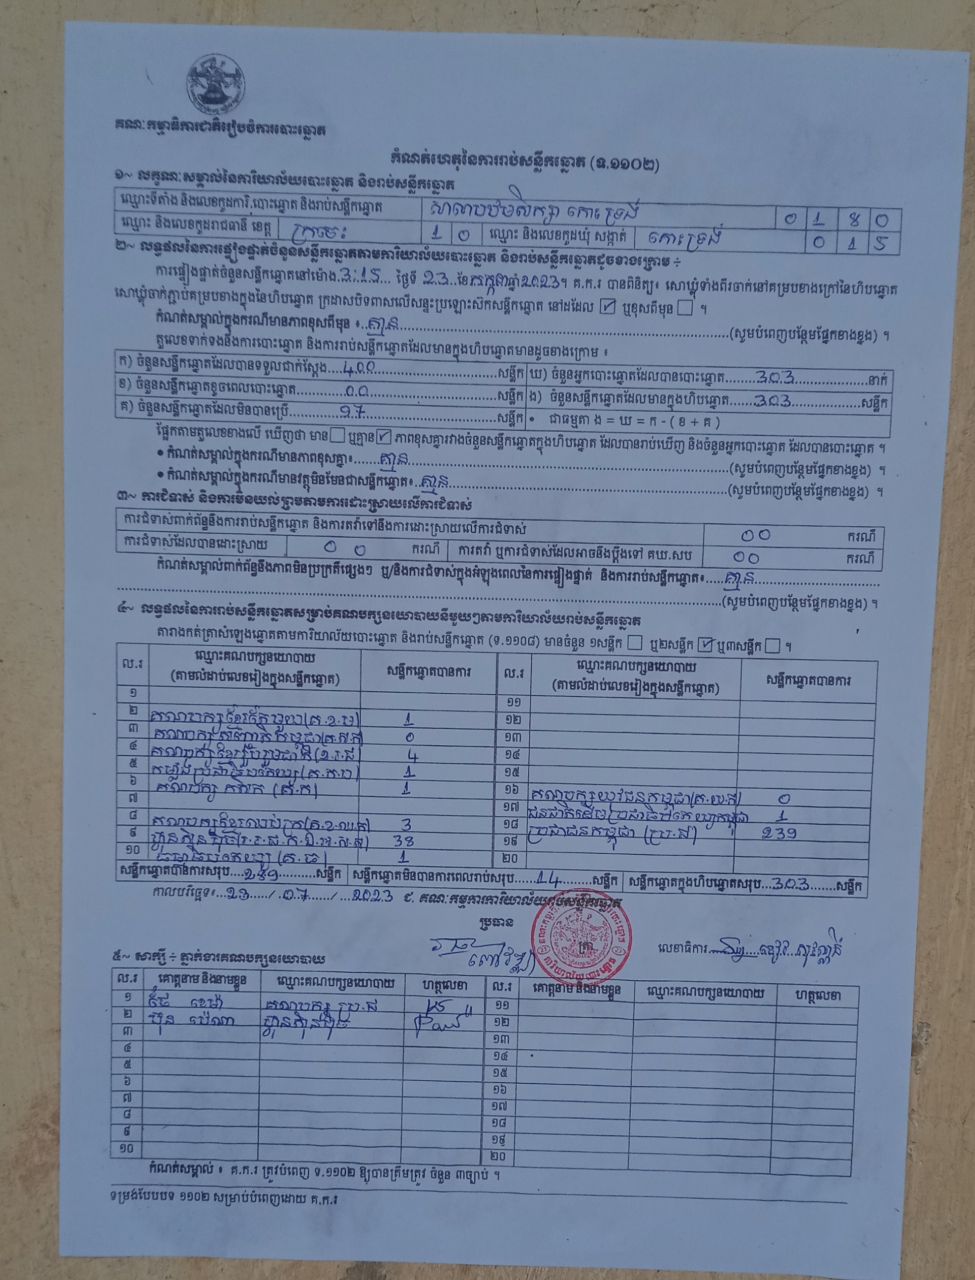 គណៈកម្មាធិការជាតិរៀបចំការបោះឆ្នោត
កំណត់ហេតុនៃការរាប់សន្លឹកឆ្នោត (ទ.១១០២)
១~ លក្ខណៈសម្គាល់នៃការិយាល័យបោះឆ្នោត និងរាប់សន្លឹកឆ្នោត
ឈ្មោះទីតាំង និងលេខកូដការិ.បោះឆ្នោត និងរាប់សន្លឹកឆ្នោត សាលាបឋមសិក្សា កោះទ្រង់ 0 1 8 0
ឈ្មោះ និងលេខកូដរាជធានី ខេត្ត ក្រចេះ 1 0 ឈ្មោះ និងលេខកូដឃុំ សង្កាត់ កោះទ្រង់ 0 1 5
២~ លទ្ធផលនៃការផ្ទៀងផ្ទាត់ចំនួនសន្លឹកឆ្នោតតាមការិយាល័យបោះឆ្នោត និងរាប់សន្លឹកឆ្នោតដូចខាងក្រោម ÷
ការផ្ទៀងផ្ទាត់ចំនួនសន្លឹកឆ្នោតនៅម៉ោង 3:15 ថ្ងៃទី 23 ខែ កក្កដា ឆ្នាំ 2023។ គ.ក.រ បានពិនិត្យ៖ សោឃ្លុំទាំងពីរចាក់នៅគម្របខាងក្រៅនៃហិបឆ្នោត
សោឃ្លុំចាក់ភ្ជាប់គម្របខាងក្នុងនៃហិបឆ្នោត ក្រដាសបិទពាសលើសន្ទះប្រឡោះស៊កសន្លឹកឆ្នោត នៅដដែល ☑ ឬខុសពីមុន ☐ ។
កំណត់សម្គាល់ក្នុងករណីមានភាពខុសពីមុន ៖ គ្មាន (សូមបំពេញបន្ថែមផ្នែកខាងខ្នង) ។
តួលេខទាក់ទងនឹងការបោះឆ្នោត និងការរាប់សន្លឹកឆ្នោតដែលមានក្នុងហិបឆ្នោតមានដូចខាងក្រោម ៖
ក) ចំនួនសន្លឹកឆ្នោតដែលបានទទួលជាក់ស្ដែង 400 សន្លឹក ឃ) ចំនួនអ្នកបោះឆ្នោតដែលបានបោះឆ្នោត 303 នាក់
ខ) ចំនួនសន្លឹកឆ្នោតខូចពេលបោះឆ្នោត 00 សន្លឹក ង) ចំនួនសន្លឹកឆ្នោតដែលមានក្នុងហិបឆ្នោត 303 សន្លឹក
គ) ចំនួនសន្លឹកឆ្នោតដែលមិនបានប្រើ 97 សន្លឹក • ជាធម្មតា ង = ឃ = ក - ( ខ + គ )
ផ្អែកតាមតួលេខខាងលើ ឃើញថា មាន ☐ ឬគ្មាន ☑ ភាពខុសគ្នារវាងចំនួនសន្លឹកឆ្នោតក្នុងហិបឆ្នោត ដែលបានរាប់ឃើញ និងចំនួនអ្នកបោះឆ្នោត ដែលបានបោះឆ្នោត ។
• កំណត់សម្គាល់ក្នុងករណីមានភាពខុសគ្នា៖ គ្មាន (សូមបំពេញបន្ថែមផ្នែកខាងខ្នង) ។
• កំណត់សម្គាល់ក្នុងករណីមានវត្ថុមិនមែនជាសន្លឹកឆ្នោត៖ គ្មាន (សូមបំពេញបន្ថែមផ្នែកខាងខ្នង) ។
៣~ ការជំទាស់ និងការមិនយល់ព្រមតាមការដោះស្រាយលើការជំទាស់
ការជំទាស់ពាក់ព័ន្ធនឹងការរាប់សន្លឹកឆ្នោត និងការតវ៉ាទៅនឹងការដោះស្រាយលើការជំទាស់ 00 ករណី
ការជំទាស់ដែលបានដោះស្រាយ 00 ករណី ការតវ៉ា ឬការជំទាស់ដែលអាចនឹងប្ដឹងទៅ គឃ.សប 00 ករណី
កំណត់សម្គាល់ពាក់ព័ន្ធនឹងភាពមិនប្រក្រតីផ្សេងៗ ឬ/និងការជំទាស់ក្នុងអំឡុងពេលនៃការផ្ទៀងផ្ទាត់ និងការរាប់សន្លឹកឆ្នោត៖ គ្មាន
(សូមបំពេញបន្ថែមផ្នែកខាងខ្នង) ។
៤~ លទ្ធផលនៃការរាប់សន្លឹកឆ្នោតសម្រាប់គណបក្សនយោបាយនីមួយៗតាមការិយាល័យរាប់សន្លឹកឆ្នោត
តារាងកត់ត្រាសំឡេងឆ្នោតតាមការិយាល័យបោះឆ្នោត និងរាប់សន្លឹកឆ្នោត (ទ.១១០៨) មានចំនួន ១សន្លឹក ☐ ឬ២សន្លឹក ☑ ឬ៣សន្លឹក ☐ ។
ល.រ ឈ្មោះគណបក្សនយោបាយ (តាមលំដាប់លេខរៀងក្នុងសន្លឹកឆ្នោត) សន្លឹកឆ្នោតបានការ ល.រ ឈ្មោះគណបក្សនយោបាយ (តាមលំដាប់លេខរៀងក្នុងសន្លឹកឆ្នោត) សន្លឹកឆ្នោតបានការ
១ ១១
២ គណបក្សខ្មែរតែមួយ 1 ១២
៣ គណបក្ស 0 ១៣
៤ គណបក្សខ្មែររួបរួមជាតិ 4 ១៤
៥ កម្លាំងប្រជាធិបតេយ្យ 1 ១៥
៦ គណបក្ស កសិករ 1 ១៦ គណបក្សយុវជនកម្ពុជា 0
៧ ១៧ ជនជាតិដើមប្រជាធិបតេយ្យកម្ពុជា 1
៨ គណបក្សខ្មែរឈប់ក្រ 3 ១៨ ប្រជាជនកម្ពុជា (ប្រ.ជ) 239
៩ ហ៊្វុនស៊ិនប៉ិច 38 ១៩
១០ ធម្មាធិបតេយ្យ 1 ២០
សន្លឹកឆ្នោតបានការសរុប 289 សន្លឹក សន្លឹកឆ្នោតមិនបានការពេលរាប់សរុប 14 សន្លឹក សន្លឹកឆ្នោតក្នុងហិបឆ្នោតសរុប 303 សន្លឹក
កាលបរិច្ឆេទ៖ 23 / 07 / 2023 ៩. គណៈកម្មការការិយាល័យរាប់សន្លឹកឆ្នោត
ប្រធាន
លេខាធិការ
៥~ សាក្សី ÷ ភ្នាក់ងារគណបក្សនយោបាយ
ល.រ គោត្តនាម និងនាមខ្លួន ឈ្មោះគណបក្សនយោបាយ ហត្ថលេខា ល.រ គោត្តនាម និងនាមខ្លួន ឈ្មោះគណបក្សនយោបាយ ហត្ថលេខា
១ គណបក្ស ប្រ.ជ ១១
២ ហ៊្វុនស៊ិនប៉ិច ១២
៣ ១៣
៤ ១៤
៥ ១៥
៦ ១៦
៧ ១៧
៨ ១៨
៩ ១៩
១០ ២០
កំណត់សម្គាល់ ៖ គ.ក.រ ត្រូវបំពេញ ទ.១១០២ ឱ្យបានត្រឹមត្រូវ ចំនួន ៣ច្បាប់ ។
ទម្រង់បែបបទ ១១០២ សម្រាប់បំពេញដោយ គ.ក.រ